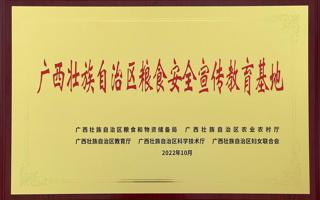 广西壮族自治区粮食安全宣传教育基地
广西壮族自治区粮食和物资储备局 广西壮族自治区农业农村厅
广西壮族自治区教育厅 广西壮族自治区科学技术厅 广西壮族自治区妇女联合会
2022年10月